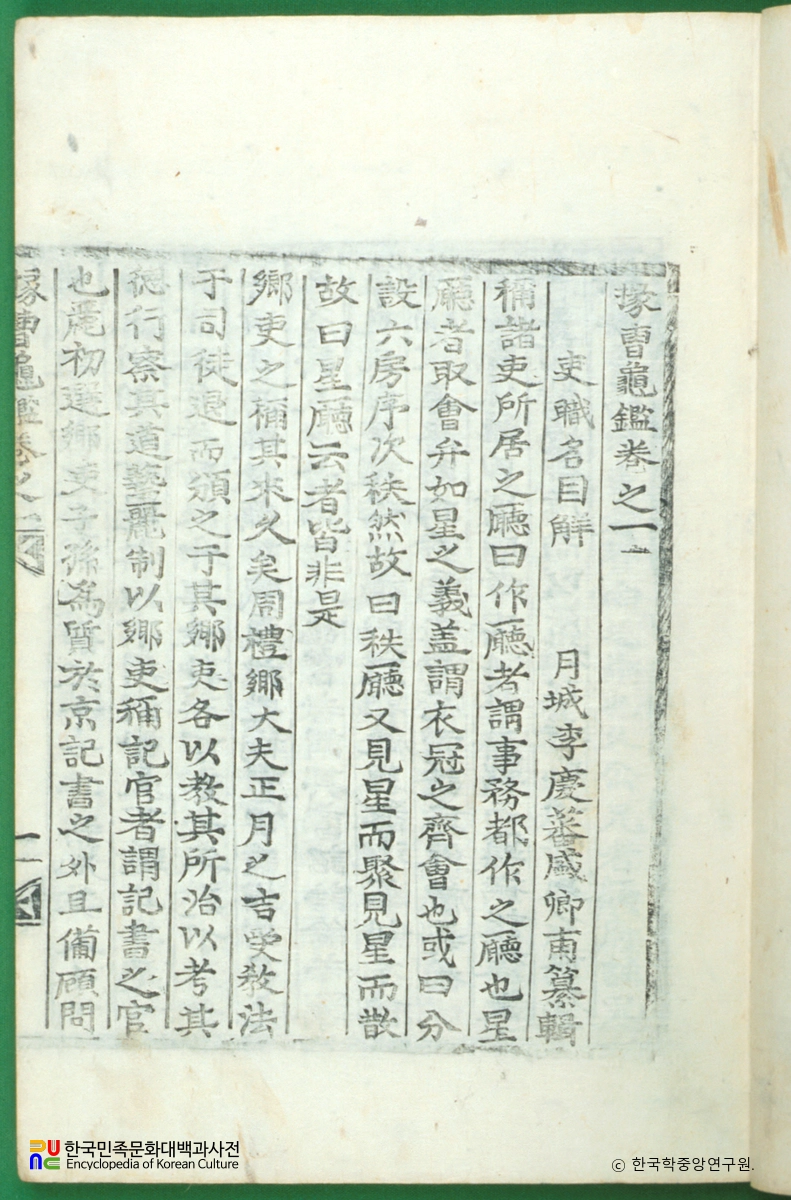 掾曹龜鑑卷之一
吏職名目解 月城李慶蕃盛卿甫纂輯
稱諸吏所居之廳曰作廳者謂事務都作之廳也星
廳者取會弁如星之義盖謂衣冠之齊會也或曰分
設六房序次秩然故曰秩廳又見星而聚見星而散
故曰星廳云者皆非是
鄉吏之稱其来久矣周禮鄉大夫正月之吉受敎法
于司徒退而頒之于其鄉吏各以教其所治以考其
德行察其道藝麗制以鄉吏稱記官者謂記書之官
也麗初選鄉吏子孫為質於京記書之外且備顧問
掾曹龜鑑卷之一 一
한국민족문화대백과사전
Encyclopedia of Korean Culture
© 한국학중앙연구원.